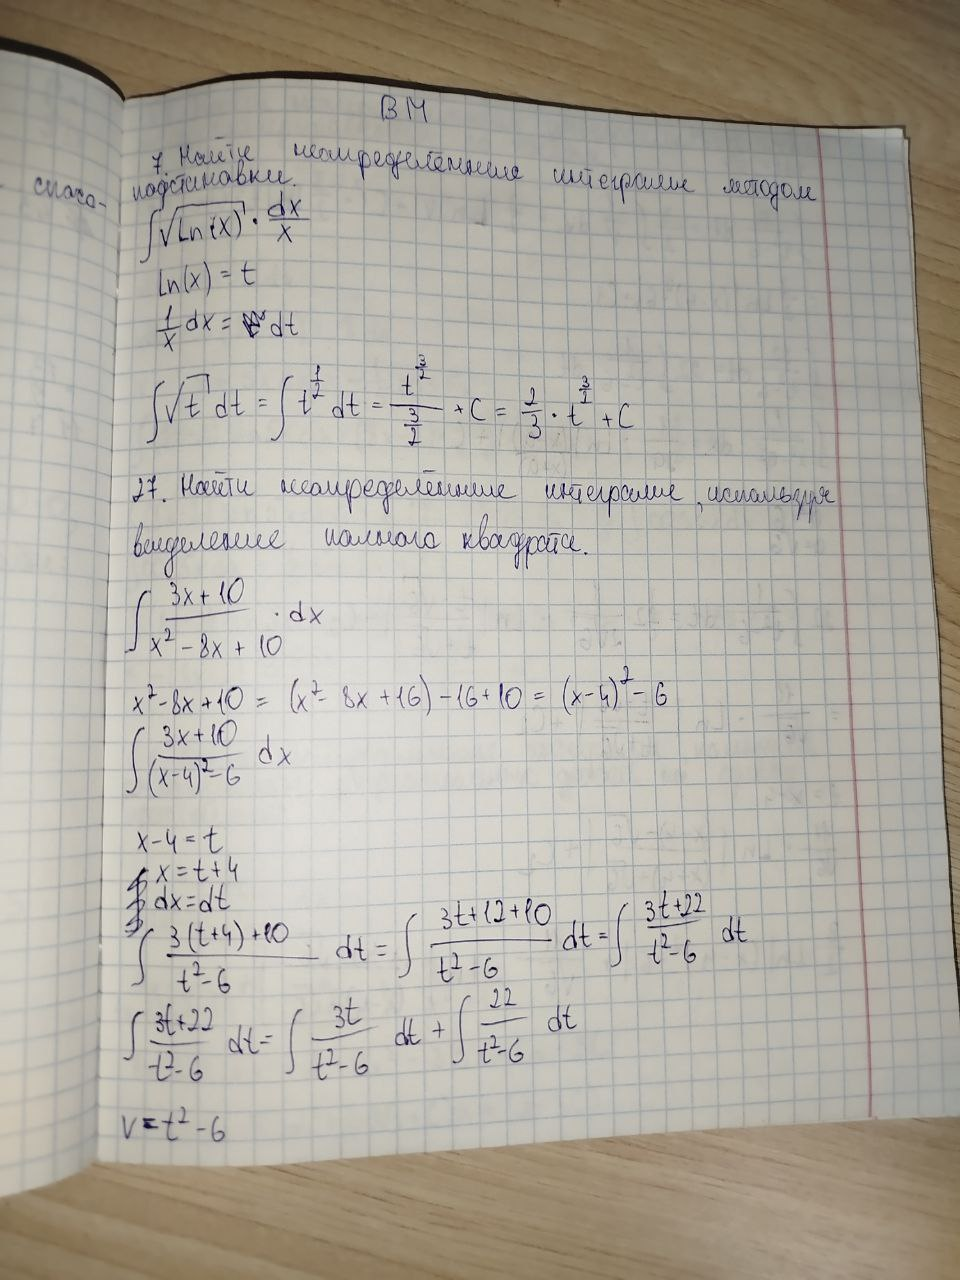 ВМ
7. Найти неопределённые интегралы методом
подстановки.
∫√ln(x) · dx/x
ln(x) = t
1/x dx = dt
∫√t dt = ∫t^(1/2) dt = t^(3/2)/(3/2) + C = 2/3 · t^(3/2) + C
27. Найти неопределённые интегралы, используя
выделение полного квадрата.
∫ (3x+10)/(x²-8x+10) · dx
x²-8x+10 = (x²-8x+16)-16+10 = (x-4)²-6
∫ (3x+10)/((x-4)²-6) dx
x-4=t
x=t+4
dx=dt
∫ (3(t+4)+10)/(t²-6) dt = ∫ (3t+12+10)/(t²-6) dt = ∫ (3t+22)/(t²-6) dt
∫ (3t+22)/(t²-6) dt = ∫ 3t/(t²-6) dt + ∫ 22/(t²-6) dt
v = t²-6